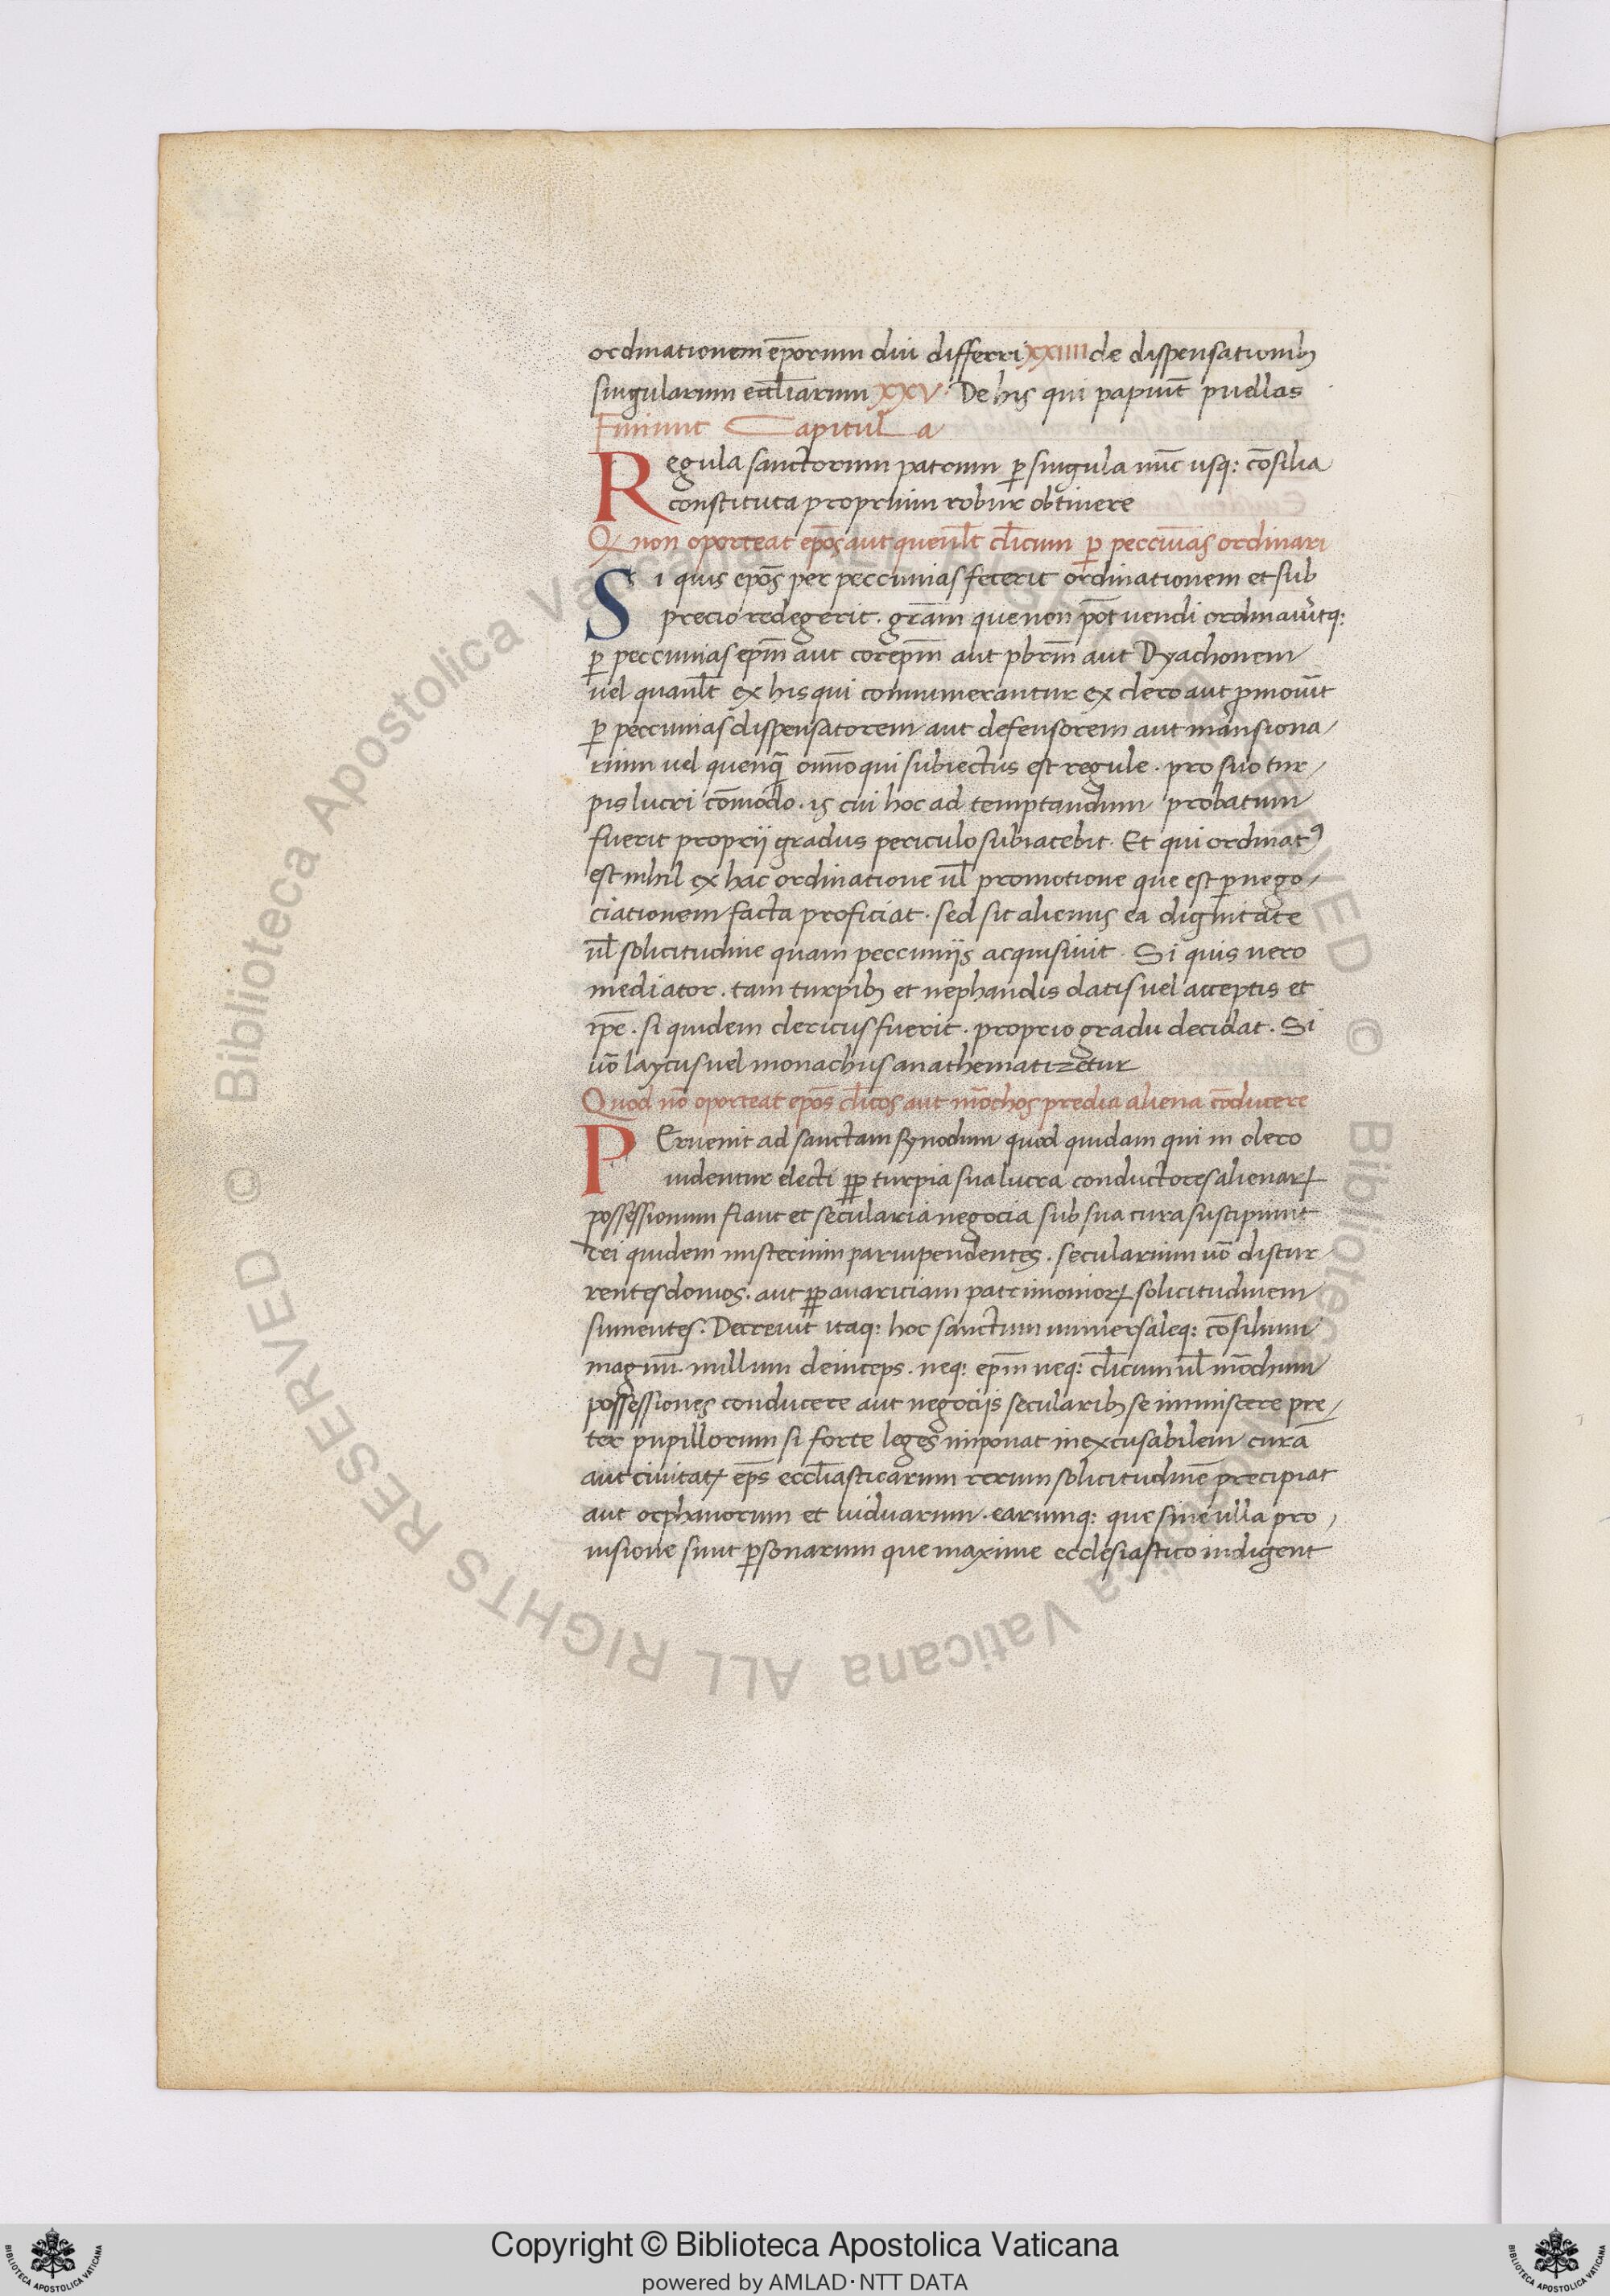 ordinationem ep̄orum diu differri xxiiii de dispensationibꝫ
singularum eccl̄iarum xxv. De his qui rapiūt puellas
Finiunt Capitula
Regula sanctorum patrum ꝑ singula nūc usqꝫ cōsilia
constituta proprium robur obtinere
Qꝫ non oporteat ep̄os aut quēul̄t cl̄icum ꝑ peccunias ordinari
Si quis ep̄os per peccunias fecerit ordinationem et sub
precio redegerit. grām que non pōt vendi ordinaūitqꝫ
ꝑ peccunias ep̄m aut corep̄m aut pbrm̄ aut Dyachonem
uel quaul̄t ex his qui connumerantur ex clero aut ꝓmoūit
ꝑ peccunias dispensatorem aut defensorem aut mansiona/
rium uel quenq̄ om̄no qui subiectus est regule. pro suo tur/
pis lucri cōmodo. is cui hoc ad temptandum probatum
fuerit proprij gradus periculo subiacebit. Et qui ordinatꝰ
est nihil ex hac ordinatione ul̄ promotione que est ꝑ nego/
ciationem facta proficiat. sed sit alienus ea dignitate
ul̄ solicitudine quam peccunijs acquisiuit. Si quis uero
mediator. tam turpibꝫ et nephandis datis uel acceptis et
ip̄e. si quidem clericus fuerit. proprio gradu decidat. Si
uō laycus uel monachus anathematizetur
Quod nō oporteat ep̄os cl̄icos aut mōchos predia aliena cōducere
PEruenit ad sanctam synodum quod quidam qui in clero
uidentur electi ꝓp turpia sua lucra conductores alienarꝝ
possessionum fiant et secularia negocia sub sua cura suscipiunt
rei quidem misterium paruipendentes. secularium uō discur/
rentes domos. aut ꝓp auariciam patrimoniorꝝ solicitudinem
sumentes. Decreuit itaqꝫ hoc sanctum uniuersaleqꝫ cōsilium
magnū. nullum deinceps. neqꝫ ep̄m neqꝫ cl̄icum ul̄ mōchum
possessiones conducere aut negocijs secularibꝫ se inmiscere pre/
ter pupillorum si forte leges imponat inexcusabilem cura
aut ciuitatꝭ ep̄s eccl̄iasticarum rerum solicitudinē precipiat
aut orphanorum et uiduarum. earumqꝫ que sine ulla pro/
uisione sunt ꝑsonarum que maxime ecclesiastico indigent
Copyright © Biblioteca Apostolica Vaticana
powered by AMLAD·NTT DATA
© Biblioteca Apostolica Vaticana ALL RIGHTS RESERVED
© Biblioteca Apostolica Vaticana ALL RIGHTS RESERVED
BIBLIOTECA APOSTOLICA VATICANA
BIBLIOTECA APOSTOLICA VATICANA